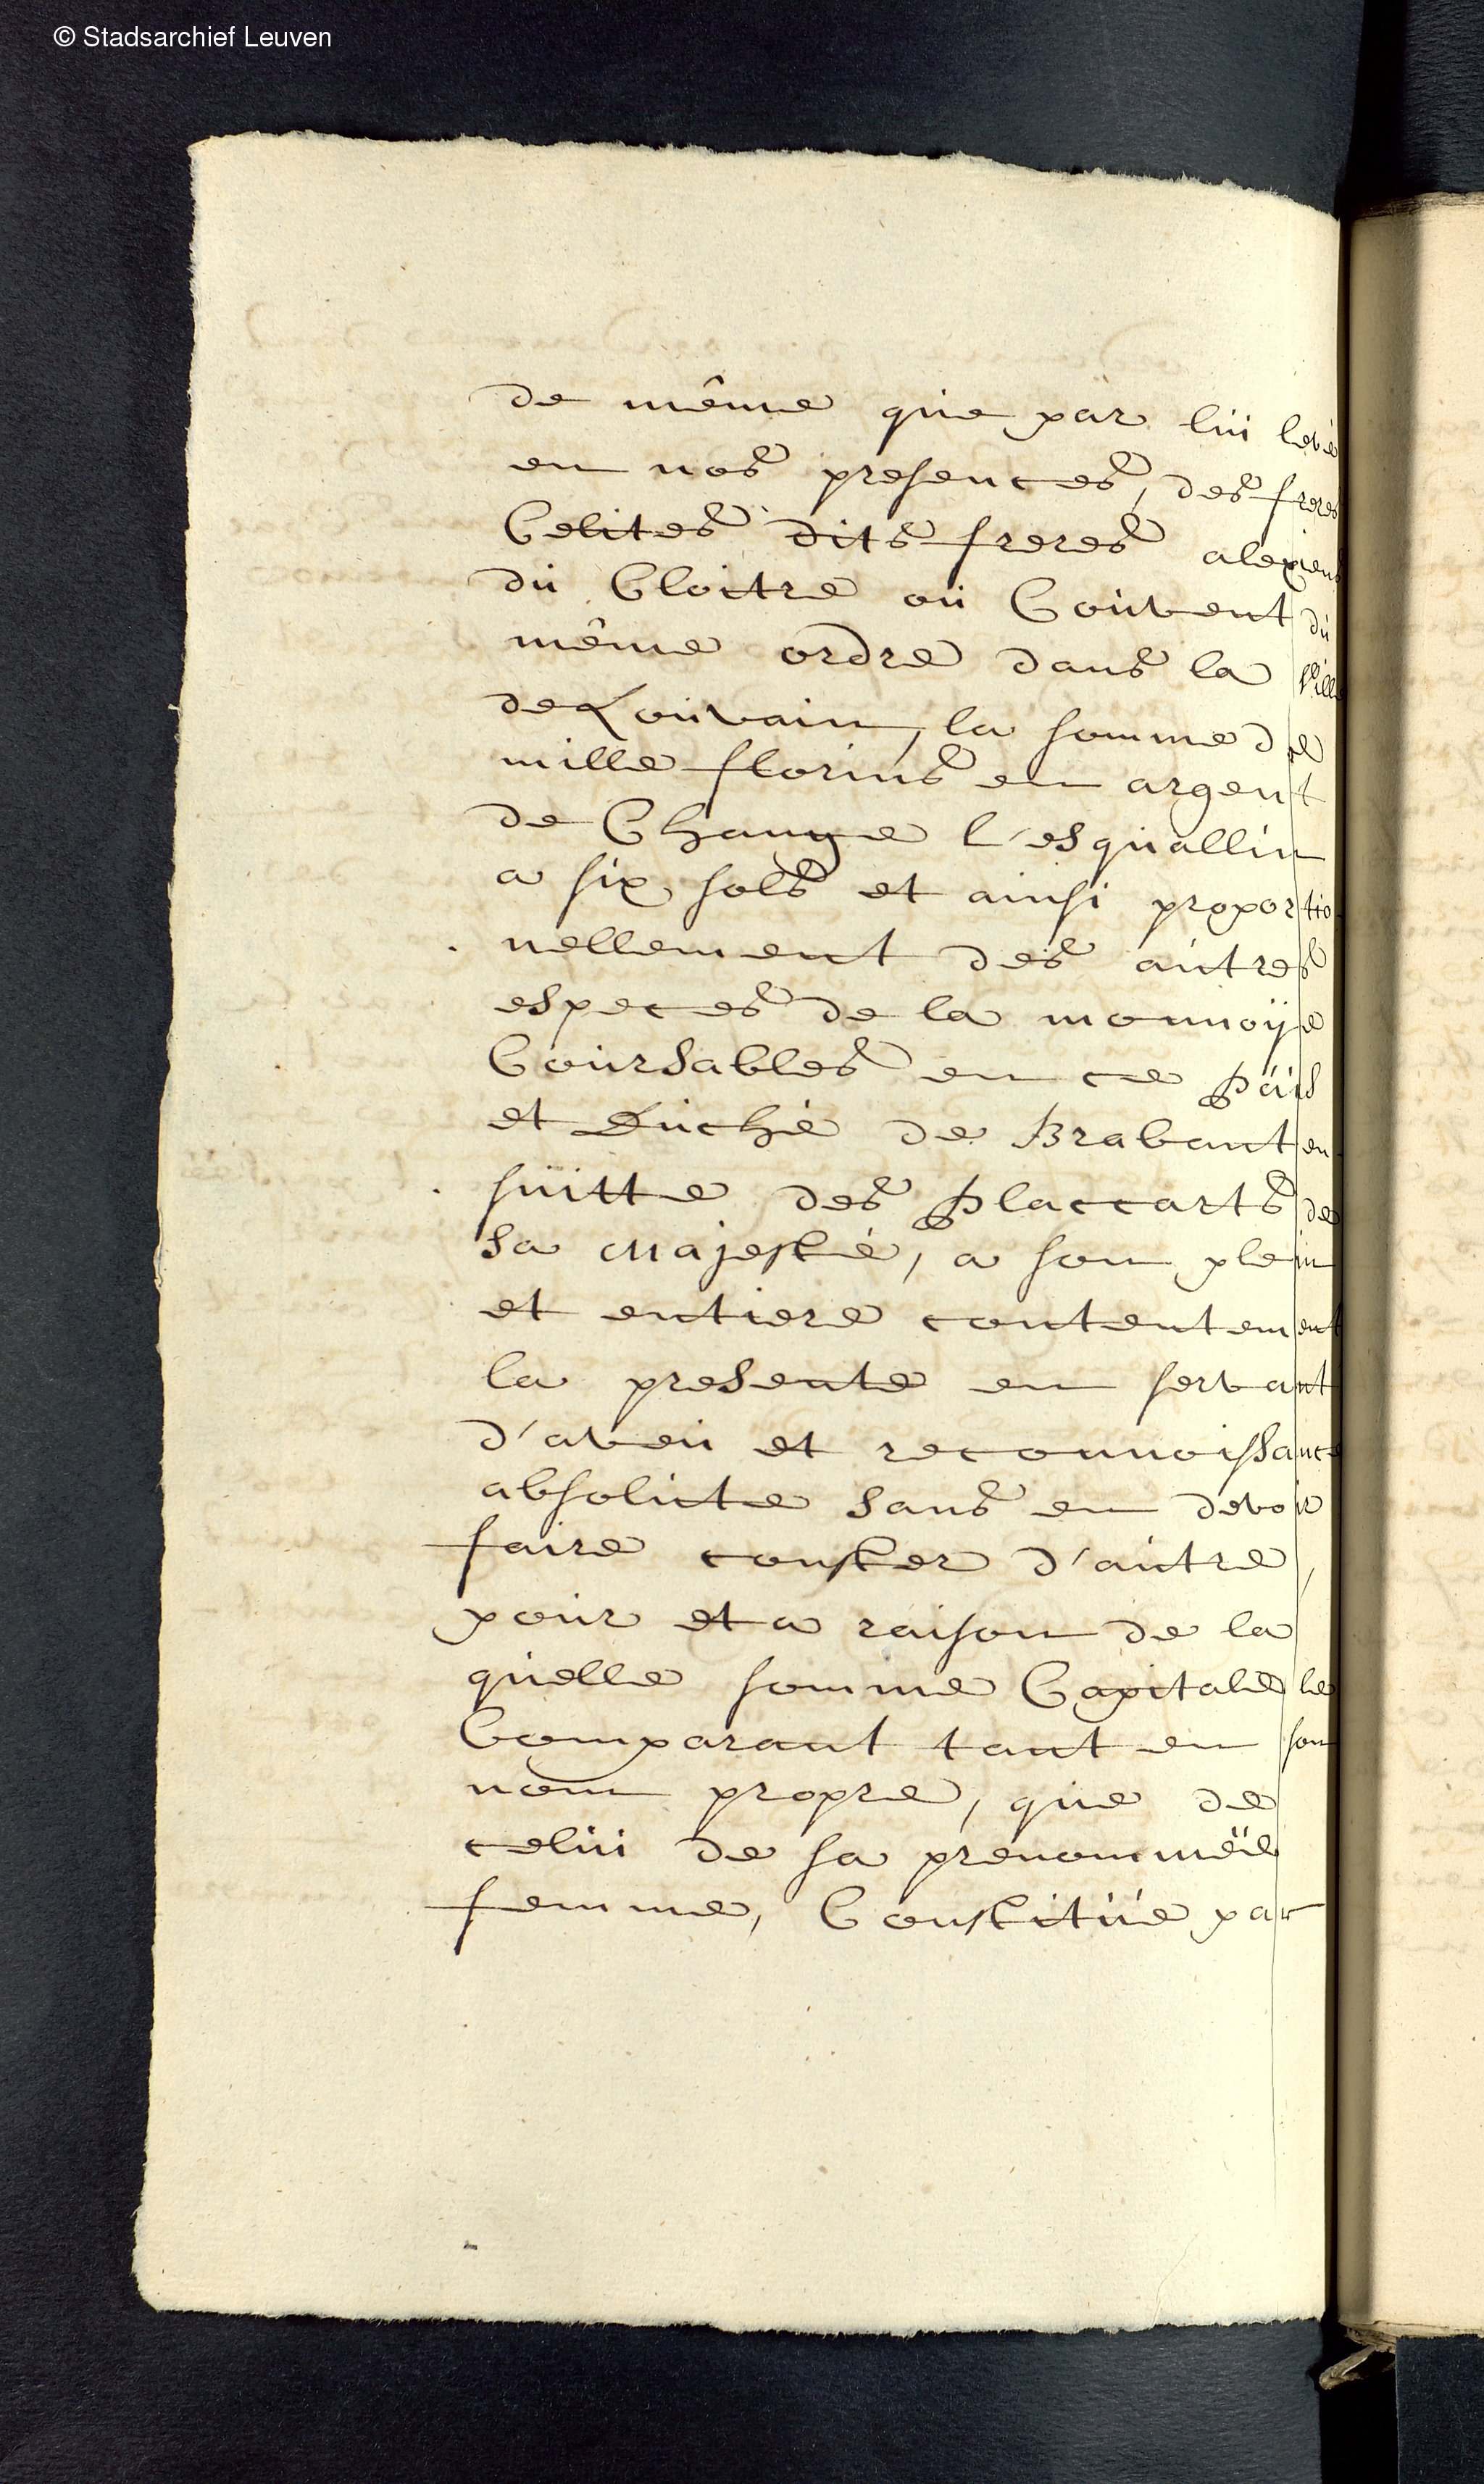 © Stadsarchief Leuven
de même que par lui levé
en nos presences, des freres
Celites dits freres alexiens
du Cloitre ou Couvent du
même ordre dans la Ville
de Louvain, la somme de
mille florins en argent
de Change l'esquallin
a six sols et ainsi proportio-
nellement des autres
especes de la monnoÿe
Coursables en ce Païs
et Duché de Brabant en
suitte des Placcarts de
Sa Majesté, a son plein
et entiere contentement
la presente en servant
d'aveu et reconnoissance
absolute sans en devoir
faire conster d'autre,
pour et a raison de la
quelle somme Capitale le
Comparant tant en son
nom propre, que de
celui de sa prenommëe
femme, Constitué par